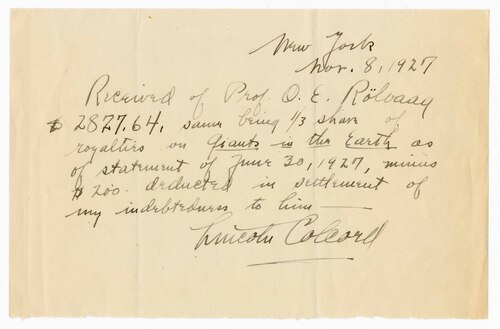 New York
Nov. 8, 1927
Received of Prof. O. E. Rölvaag
$2827.64, same being 1/3 share of
royalties on Giants in the Earth as
of statement of June 30, 1927, minus
$200. deducted in settlement of
my indebtedness to him —
Lincoln Colcord